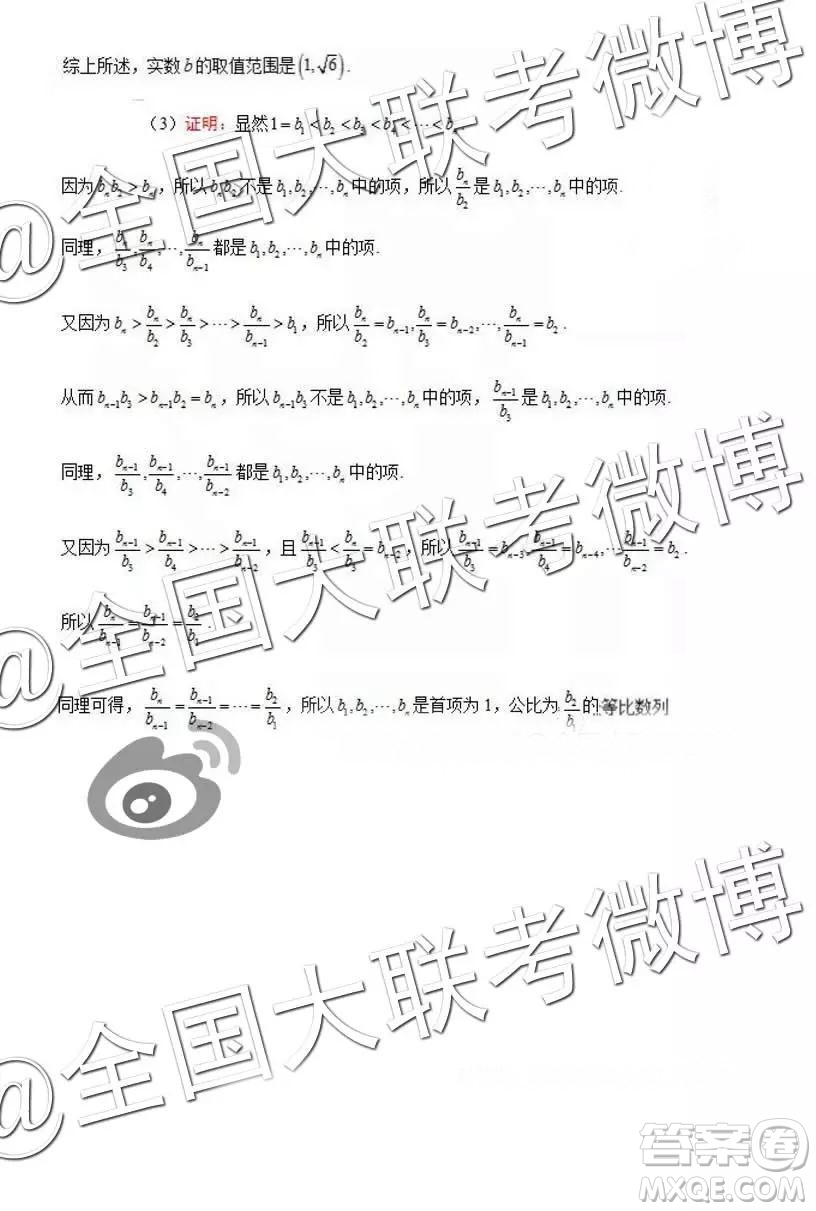 综上所述，实数 b 的取值范围是 (1,√6).
（3）证明：显然 1=b₁<b₂<b₃<b₄<⋯<bₙ.
因为 bₙb₂>bₙ，所以 bₙb₂ 不是 b₁,b₂,⋯,bₙ 中的项，所以 bₙ/b₂ 是 b₁,b₂,⋯,bₙ 中的项.
同理，bₙ/b₃,bₙ/b₄,⋯,bₙ/bₙ₋₁ 都是 b₁,b₂,⋯,bₙ 中的项.
又因为 bₙ>bₙ/b₂>bₙ/b₃>⋯>bₙ/bₙ₋₁>b₁，所以 bₙ/b₂=bₙ₋₁,bₙ/b₃=bₙ₋₂,⋯,bₙ/bₙ₋₁=b₂.
从而 bₙ₋₁b₃>bₙ₋₁b₂=bₙ，所以 bₙ₋₁b₃ 不是 b₁,b₂,⋯,bₙ 中的项，bₙ₋₁/b₃ 是 b₁,b₂,⋯,bₙ 中的项.
同理，bₙ₋₁/b₃,bₙ₋₁/b₄,⋯,bₙ₋₁/bₙ₋₂ 都是 b₁,b₂,⋯,bₙ 中的项.
又因为 bₙ₋₁/b₃>bₙ₋₁/b₄>⋯>bₙ₋₁/bₙ₋₂，且 bₙ₋₁/b₃<bₙ/b₃=bₙ₋₂，所以 bₙ₋₁/b₃=bₙ₋₃,bₙ₋₁/b₄=bₙ₋₄,⋯,bₙ₋₁/bₙ₋₂=b₂.
所以 bₙ/bₙ₋₁=bₙ₋₁/bₙ₋₂=b₂/b₁.
同理可得，bₙ/bₙ₋₁=bₙ₋₁/bₙ₋₂=⋯=b₂/b₁，所以 b₁,b₂,⋯,bₙ 是首项为 1，公比为 b₂/b₁ 的等比数列
@全国大联考微博
@全国大联考微博
@全国大联考微博
@全国大联考微博
答案卷
MXQE.COM